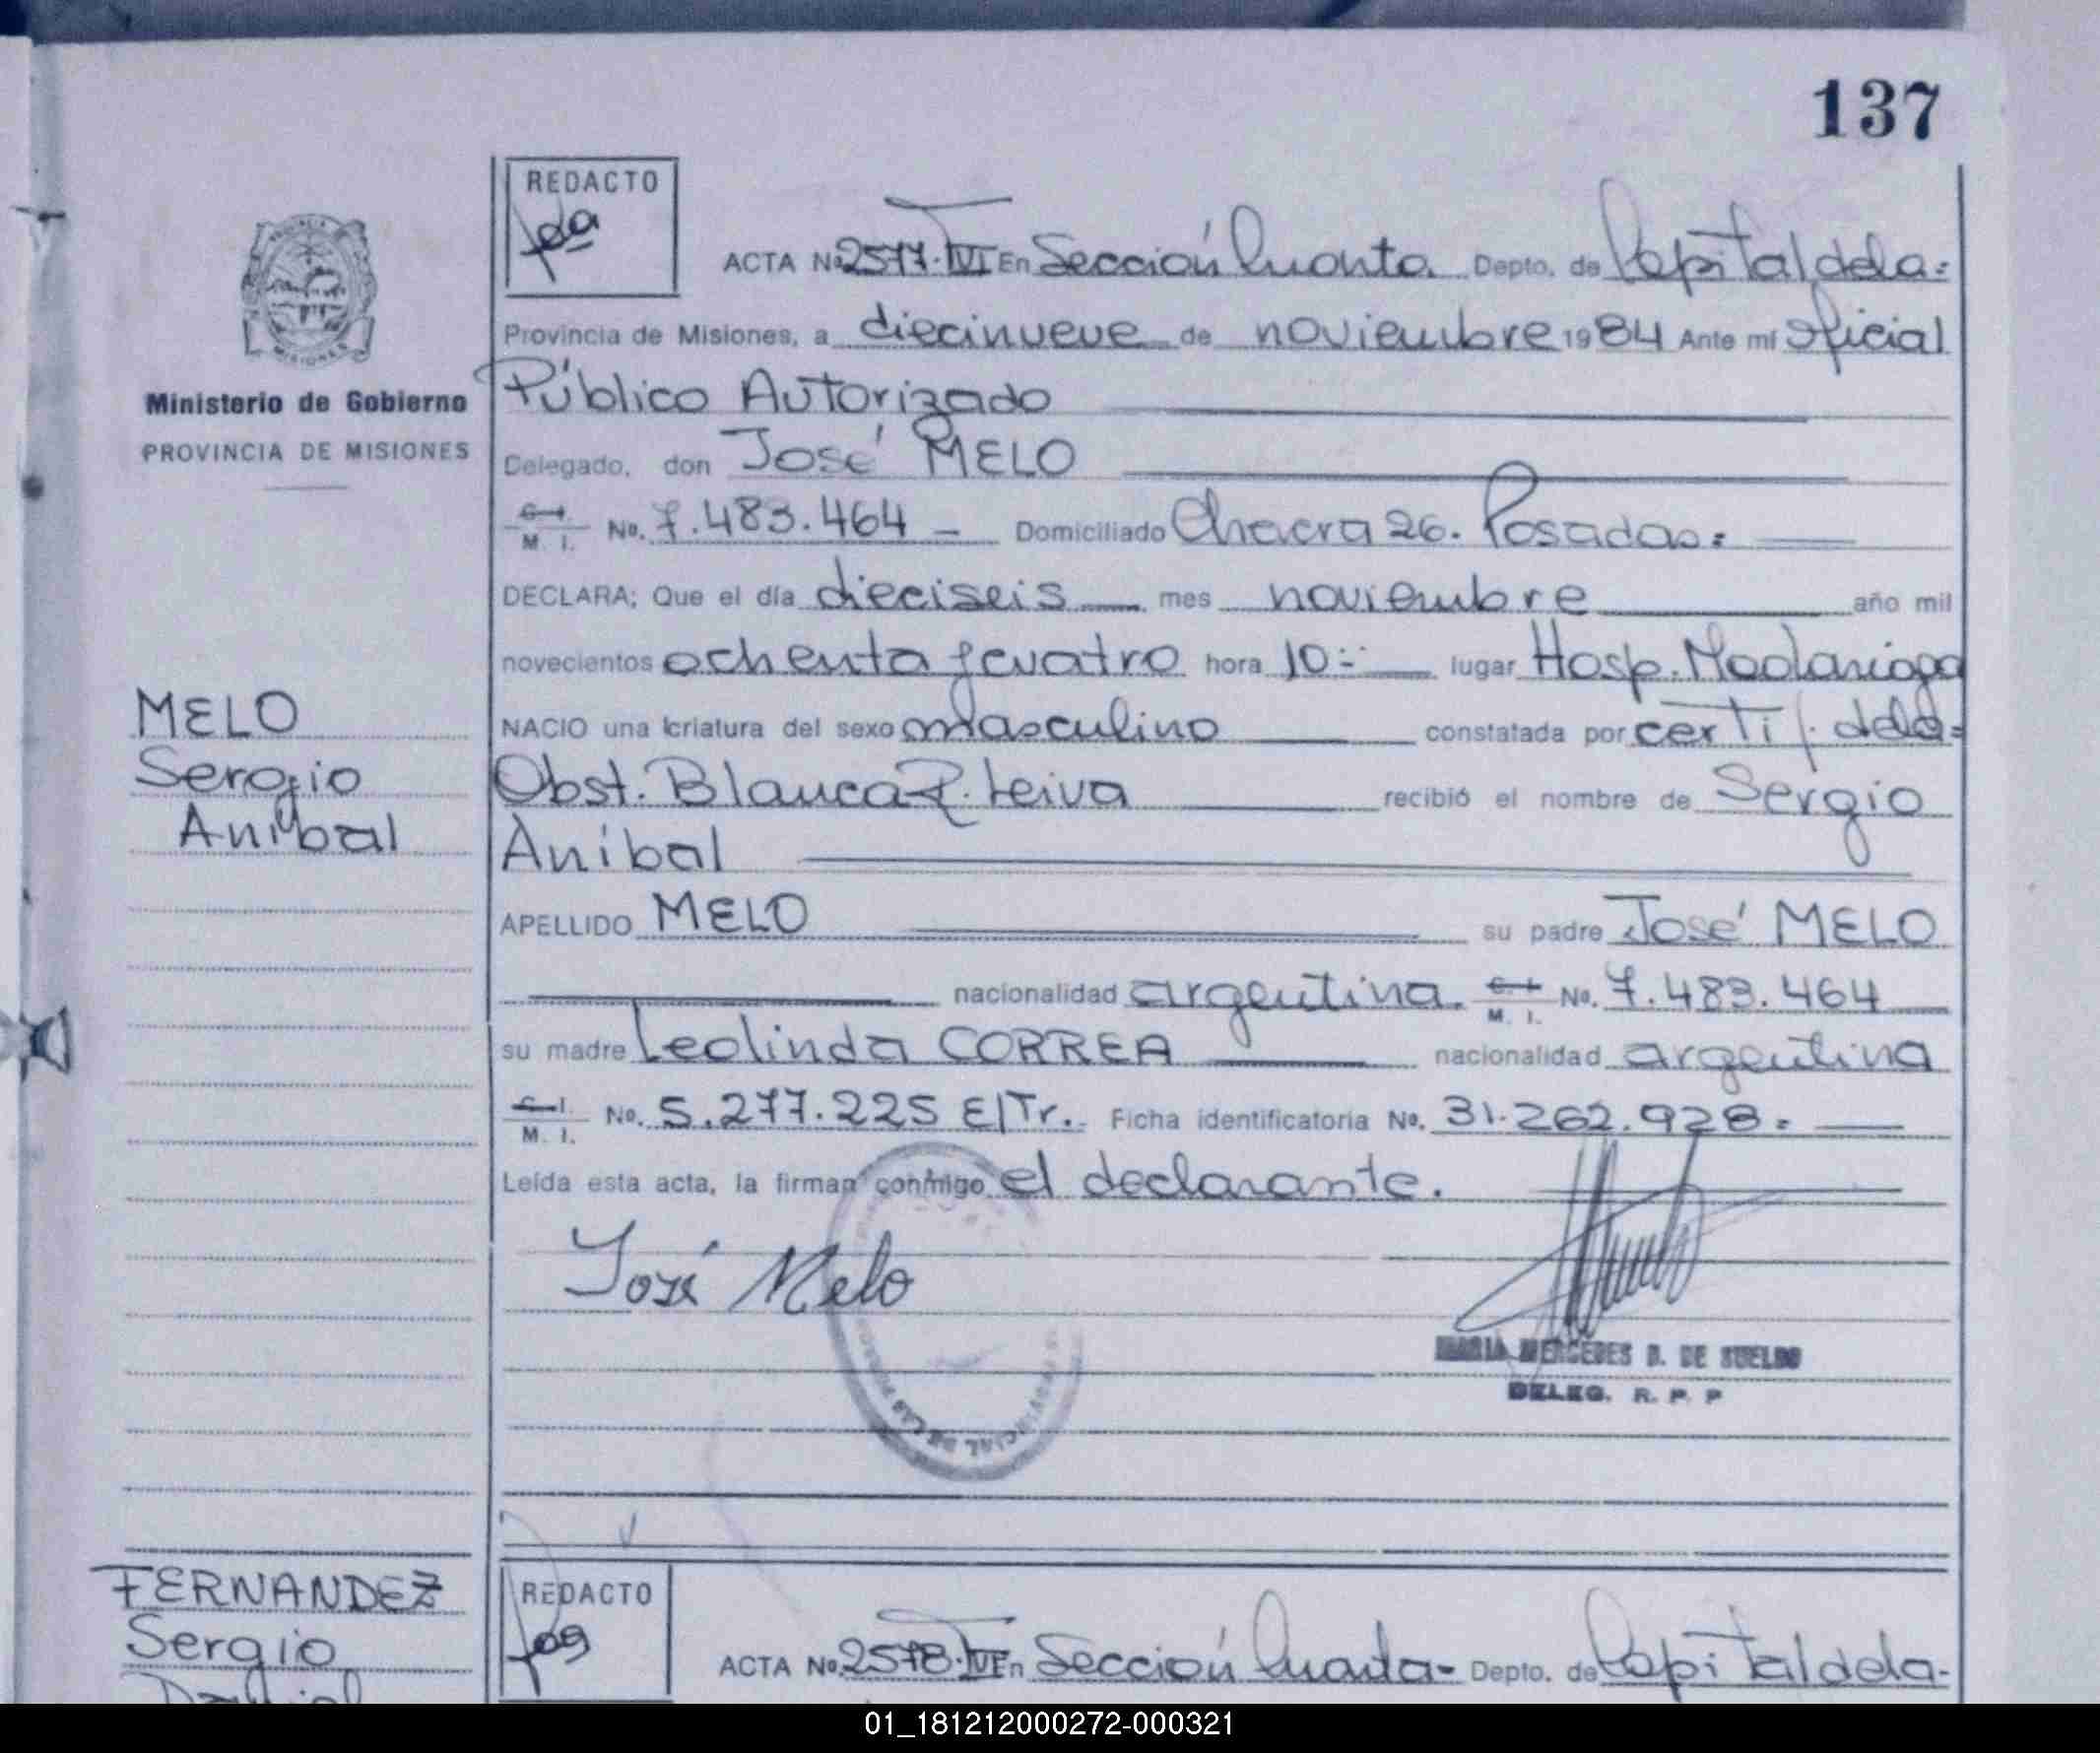 137
REDACTO
ACTA No. 2577. T VI En Sección Cuarta. Depto. de Capital de la=
Provincia de Misiones, a diecinueve de noviembre 1984 Ante mí Oficial
Público Autorizado
Delegado, don José MELO
C. I. M. I. No. 7.483.464 — Domiciliado Chacra 26. Posadas=
DECLARA; Que el día dieciseis mes noviembre año mil
novecientos ochenta y cuatro hora 10:- lugar Hosp. Madariaga
NACIO una criatura del sexo masculino constatada por certif. de la=
Obst. Blanca R. Leiva recibió el nombre de Sergio
Anibal
APELLIDO MELO su padre José MELO
nacionalidad argentina. C. I. M. I. No. 7.483.464
su madre Leolinda CORREA nacionalidad argentina
C. I. M. I. No. 5.277.225 E/Tr. Ficha identificatoria No. 31.262.928=
Leída esta acta, la firman conmigo el declarante.
José Melo
MARIA MERCEDES B. DE SUELDO
DELEG. R. P. P
Ministerio de Gobierno
PROVINCIA DE MISIONES
MELO
Sergio
Anibal
FERNANDEZ
Sergio
REDACTO
ACTA No. 2578. T VI En Sección Cuarta- Depto. de Capital de la-
01_181212000272-000321